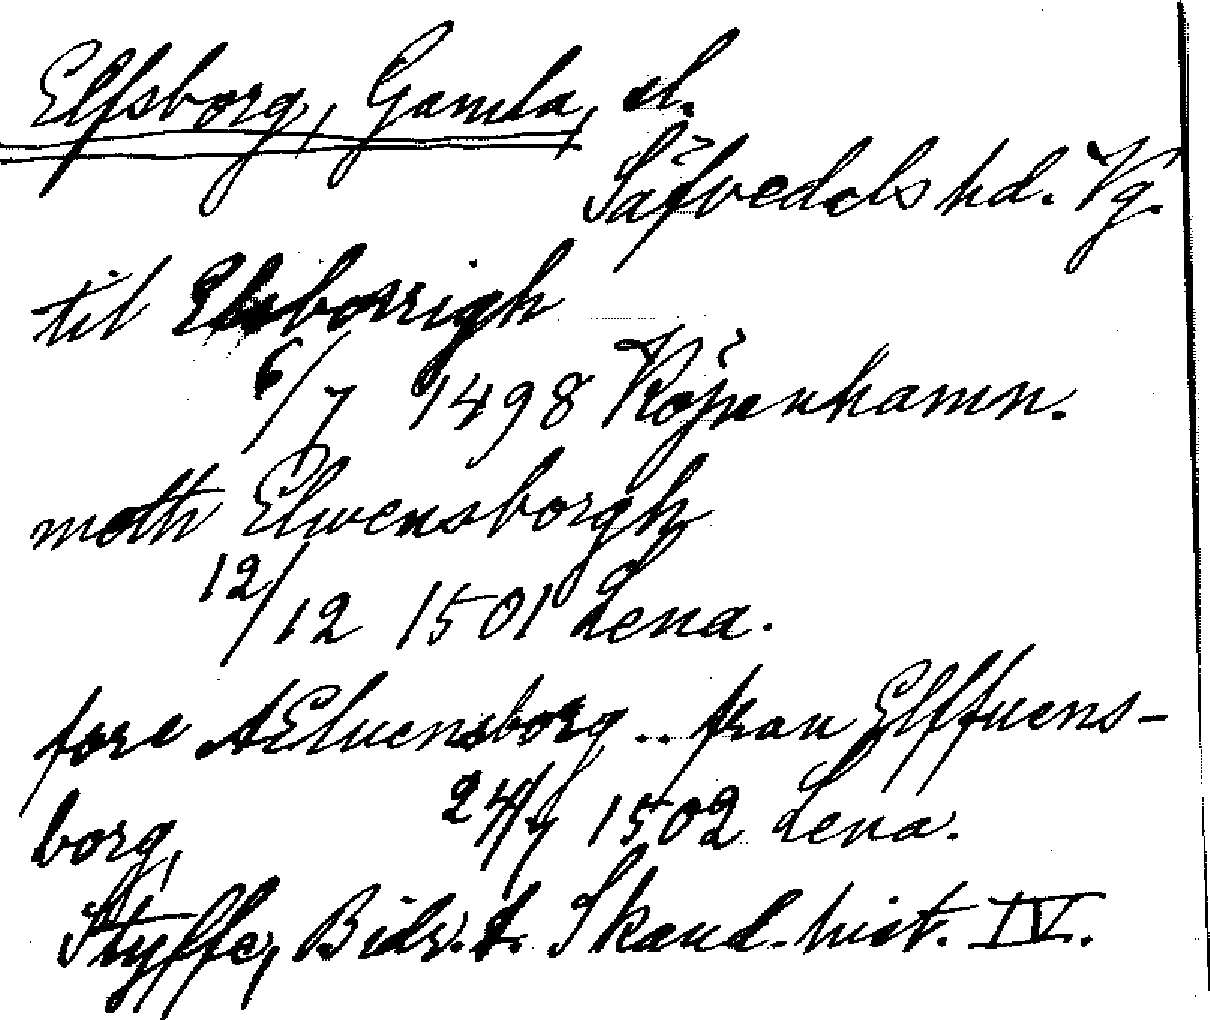 Elfsborg, Gamla, sl.
Säfvedals hd. Vg.
til Elsborrigh
6/7 1498 Köpenhamn.
moth Elwensborgh
12/12 1501 Lena.
fore AEluensborg .. fran Elffuens-
borg, 24/7 1502 Lena.
Styffe, Bidr. t. Skand. hist. IV.